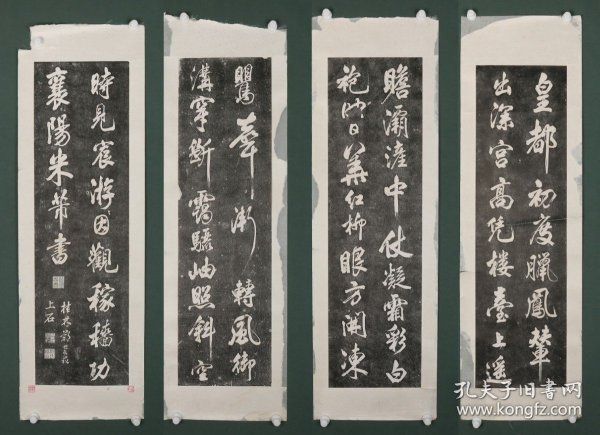 皇都初度臘鳳輦
出深宮高凭樓臺上遥
瞻灞滻中仗凝霜彩白
袍映日華紅柳眼方開凍
鸎聲漸轉風御
溝穿斷靄驪岫照斜空
時見宸游因觀稼穡功
襄陽米芾書
上石
孔夫子旧书网
www.kongfz.com